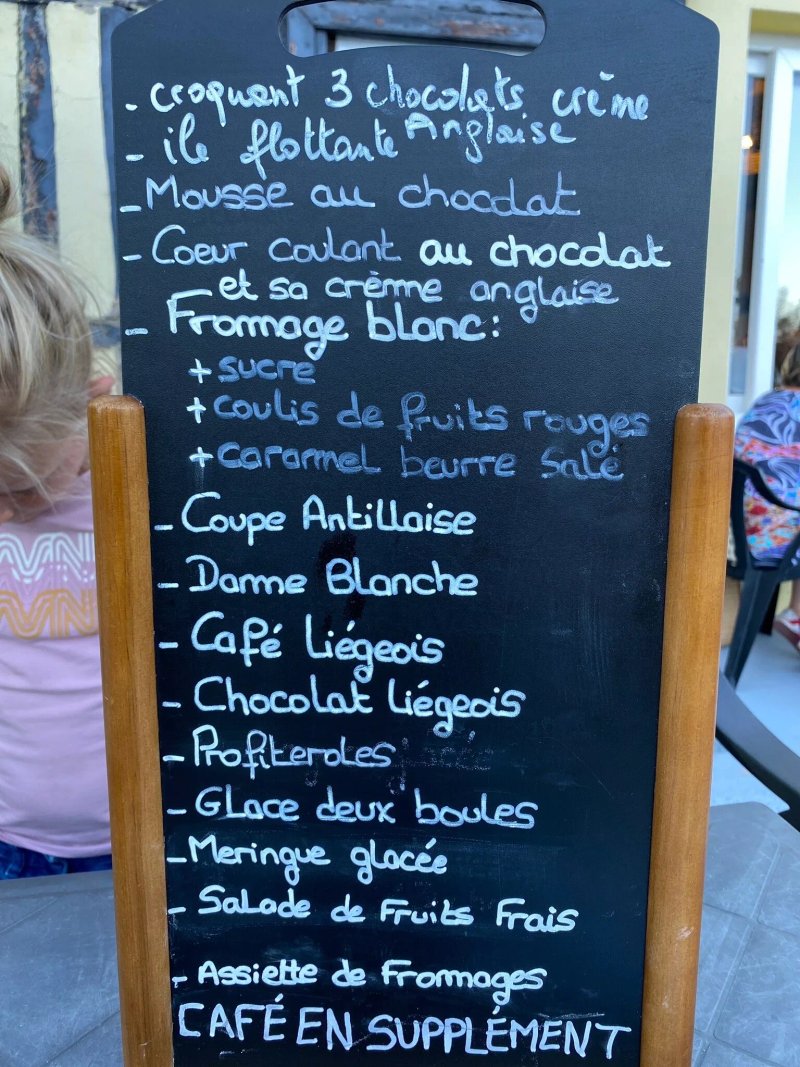 - croquant 3 chocolats crème
- ile flottante Anglaise
- Mousse au chocolat
- Coeur coulant au chocolat
et sa crème anglaise
- Fromage blanc:
+ sucre
+ coulis de fruits rouges
+ caramel beurre salé
- Coupe Antillaise
- Dame Blanche
- Café Liégeois
- Chocolat Liégeois
- Profiteroles
- Glace deux boules
- Meringue glacée
- Salade de Fruits Frais
- Assiette de Fromages
CAFÉ EN SUPPLÉMENT